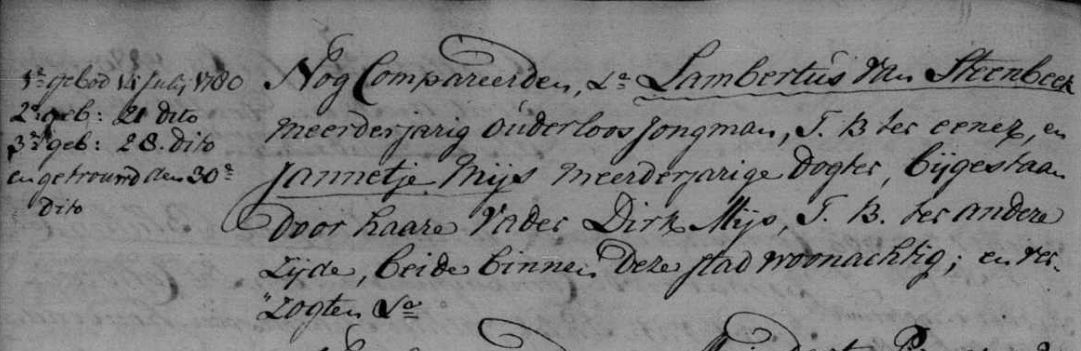 1e gebod 14 july 1780
2e geb: 21 dito
3e geb: 28. dito
en getrouwd den 30e
dito
Nog Compareerden, &a Lambertus van Steenbeek
meerderjarig ouderloos jongman, T. B ter eener, en
Jannetje Mijs meerderjarige dogter, bijgestaan
door haare vader Dirk Mijs, T. B. ter andere
zijde, beide binnen deze stad woonachtig; en ver-
zogten &a